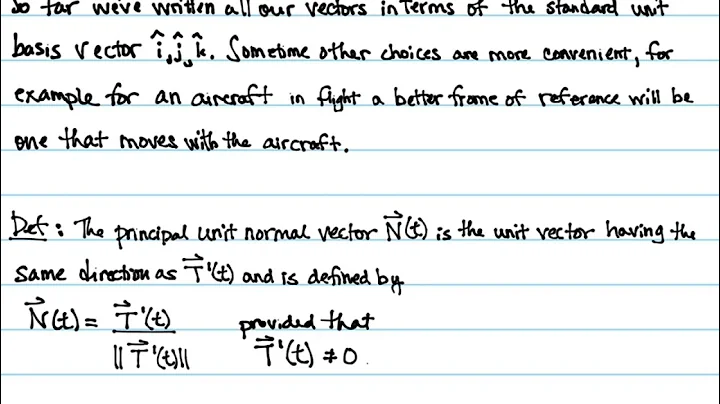 So far we've written all our vectors in terms of the standard unit
basis vector î, ĵ, k̂. Sometime other choices are more convenient, for
example for an aircraft in flight a better frame of reference will be
one that moves with the aircraft.
Def: The principal unit normal vector N⃗(t) is the unit vector having the
same direction as T⃗'(t) and is defined by
N⃗(t) = T⃗'(t) / ||T⃗'(t)|| provided that
T⃗'(t) ≠ 0.